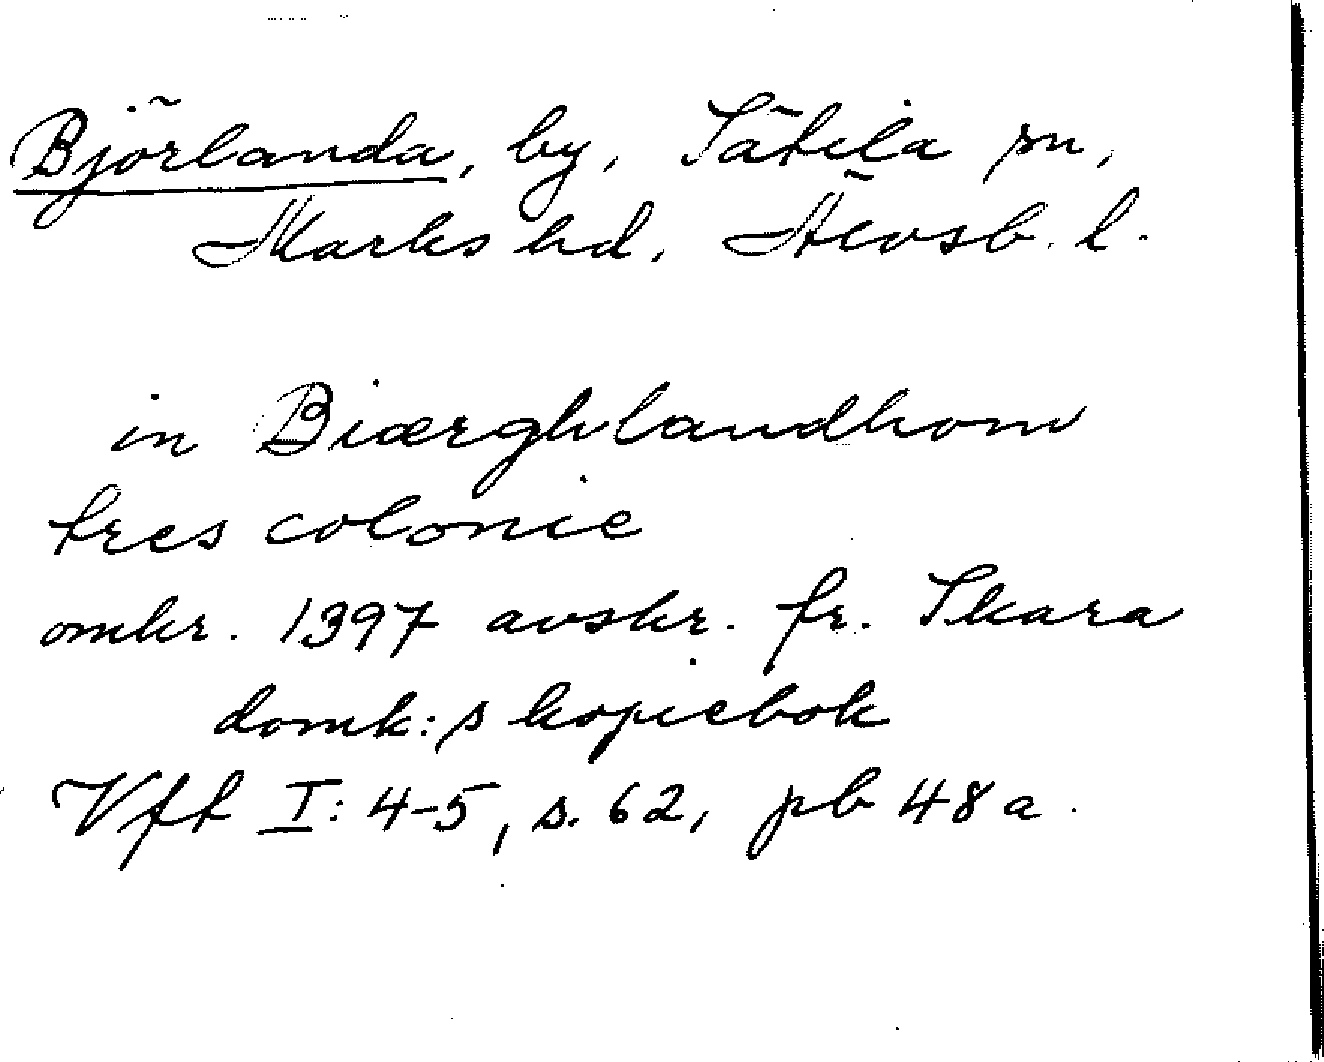 Björlanda, by, Sätila sn,
Marks hd, Älvsb. l.
in Biærghlandhom
tres colonie
omkr. 1397 avskr. fr. Skara
domk:s kopiebok
Vft I: 4-5, s. 62, pb 48 a.